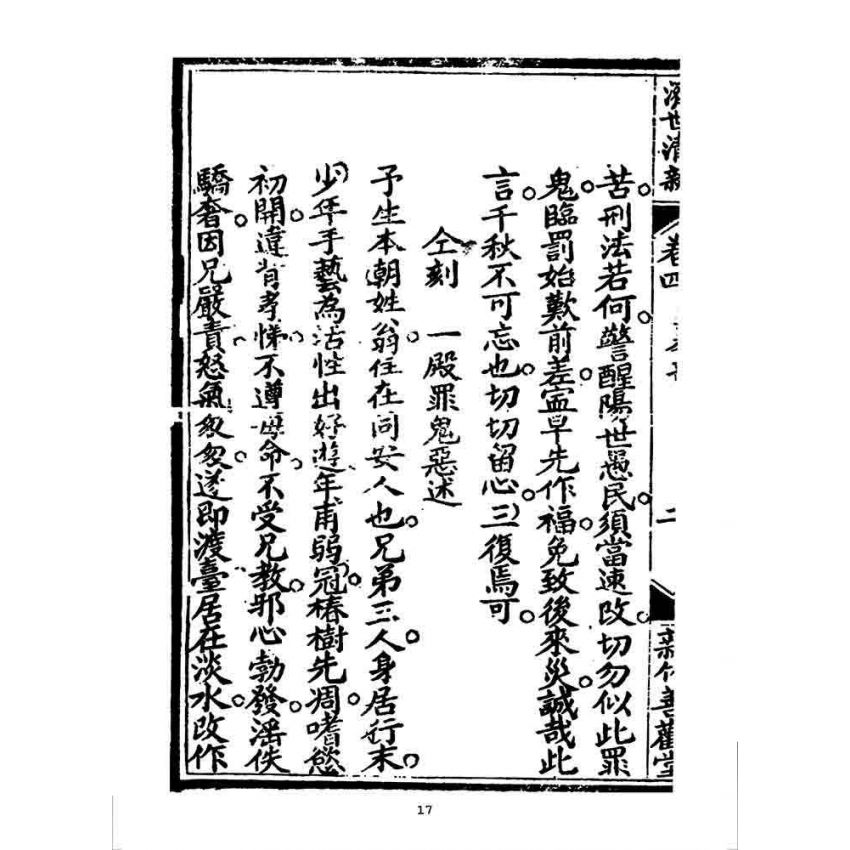 濟世清新 卷四 二 新竹善觀堂
苦刑法若何。警醒陽世愚民。須當速改。切勿似此罪
鬼。臨罰始歎前差。寔早先作福。免致後來災。誠哉此
言。千秋不可忘也。切切留心。三復焉可。
仝刻 一殿罪鬼惡述
予生本朝姓翁。住在同安人也。兄弟三人。身居行末。
少年手藝為活。性出好遊。年甫弱冠。椿樹先凋。嗜慾
初開。違背孝悌。不遵母命。不受兄教。邪心勃發。淫佚
驕奢。因兄嚴責。怒氣匆匆。遂即渡臺。居在淡水。改作
17